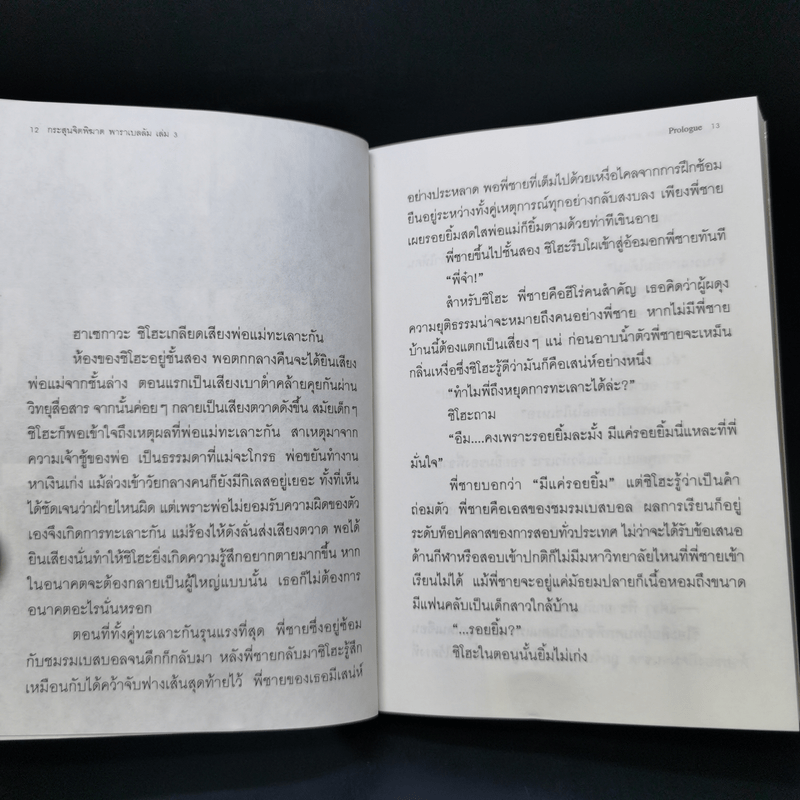 12 กระสุนจิตพิฆาต พาราเบลลัม เล่ม 3
ฮาเซกาวะ ชิโฮะเกลียดเสียงพ่อแม่ทะเลาะกัน
ห้องของชิโฮะอยู่ชั้นสอง พอตกกลางคืนจะได้ยินเสียง
พ่อแม่จากชั้นล่าง ตอนแรกเป็นเสียงเบาต่ำคล้ายคุยกันผ่าน
วิทยุสื่อสาร จากนั้นค่อยๆ กลายเป็นเสียงตวาดดังขึ้น สมัยเด็กๆ
ชิโฮะก็พอเข้าใจถึงเหตุผลที่พ่อแม่ทะเลาะกัน สาเหตุมาจาก
ความเจ้าชู้ของพ่อ เป็นธรรมดาที่แม่จะโกรธ พ่อขยันทำงาน
หาเงินเก่ง แม้ล่วงเข้าวัยกลางคนก็ยังมีกิเลสอยู่เยอะ ทั้งที่เห็น
ได้ชัดเจนว่าฝ่ายไหนผิด แต่เพราะพ่อไม่ยอมรับความผิดของตัว
เองจึงเกิดการทะเลาะกัน แม่ร้องไห้ดังลั่นส่งเสียงตวาด พอได้
ยินเสียงนั่นทำให้ชิโฮะยิ่งเกิดความรู้สึกอยากตายมากขึ้น หาก
ในอนาคตจะต้องกลายเป็นผู้ใหญ่แบบนั้น เธอก็ไม่ต้องการ
อนาคตอะไรนั่นหรอก
ตอนที่ทั้งคู่ทะเลาะกันรุนแรงที่สุด พี่ชายซึ่งอยู่ซ้อม
กับชมรมเบสบอลจนดึกก็กลับมา หลังพี่ชายกลับมาชิโฮะรู้สึก
เหมือนกับได้คว้าจับฟางเส้นสุดท้ายไว้ พี่ชายของเธอมีเสน่ห์
Prologue 13
อย่างประหลาด พอพี่ชายที่เต็มไปด้วยเหงื่อไคลจากการฝึกซ้อม
ยืนอยู่ระหว่างทั้งคู่เหตุการณ์ทุกอย่างกลับสงบลง เพียงพี่ชาย
เผยรอยยิ้มสดใสพ่อแม่ก็ยิ้มตามด้วยท่าทีเขินอาย
พี่ชายขึ้นไปชั้นสอง ชิโฮะรีบโผเข้าสู่อ้อมอกพี่ชายทันที
“พี่จ๋า!”
สำหรับชิโฮะ พี่ชายคือฮีโร่คนสำคัญ เธอคิดว่าผู้ผดุง
ความยุติธรรมน่าจะหมายถึงคนอย่างพี่ชาย หากไม่มีพี่ชาย
บ้านนี้ต้องแตกเป็นเสี่ยงๆ แน่ ก่อนอาบน้ำตัวพี่ชายจะเหม็น
กลิ่นเหงื่อซึ่งชิโฮะรู้ดีว่ามันก็คือเสน่ห์อย่างหนึ่ง
“ทำไมพี่ถึงหยุดการทะเลาะได้ล่ะ?”
ชิโฮะถาม
“อืม....คงเพราะรอยยิ้มละมั้ง มีแค่รอยยิ้มนี่แหละที่พี่
มั่นใจ”
พี่ชายบอกว่า “มีแค่รอยยิ้ม” แต่ชิโฮะรู้ว่าเป็นคำ
ถ่อมตัว พี่ชายคือเอสของชมรมเบสบอล ผลการเรียนก็อยู่
ระดับท็อปคลาสของการสอบทั่วประเทศ ไม่ว่าจะได้รับข้อเสนอ
ด้านกีฬาหรือสอบเข้าปกติก็ไม่มีมหาวิทยาลัยไหนที่พี่ชายเข้า
เรียนไม่ได้ แม้พี่ชายจะอยู่แค่มัธยมปลายก็เนื้อหอมถึงขนาด
มีแฟนคลับเป็นเด็กสาวใกล้บ้าน
“...รอยยิ้ม?”
ชิโฮะในตอนนั้นยิ้มไม่เก่ง